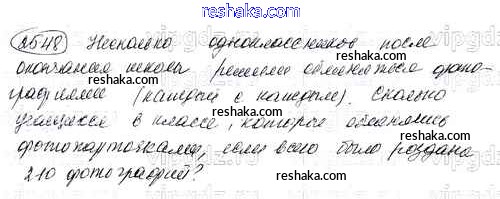 reshaka.com
2548 Несколько одноклассников после
окончания школы решили обменяться фото-
графиями (каждый с каждым). Сколько
учащихся в классе, которые обменялись
фотокарточками, если всего было роздано
210 фотографий?